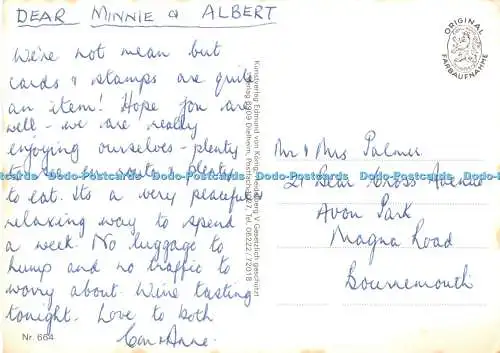 DEAR MINNIE & ALBERT
We're not mean but
cards & stamps are quite
an item! Hope you are
well - we are really
enjoying ourselves - plenty
to see en route & plenty
to eat. Its a very peaceful
relaxing way to spend
a week. No luggage to
hump and no traffic to
worry about. Wine tasting
tonight. Love to both
Con & Anne.
Nr. 664
Kunstverlag Edmund von König, Heidelberg V Gesetzlich geschützt
Verlag 6909 Dielheim, Postfach 1027, Tel. 06222/72018
ORIGINAL
FARBAUFNAHME
Mr & Mrs Palmer
21 Dear Cross Avenue
Avon Park
Magna Road
Bournemouth
Dodo-Postcards Dodo-Postcards Dodo-Postcards Dodo-Postcards Dodo-Postcards